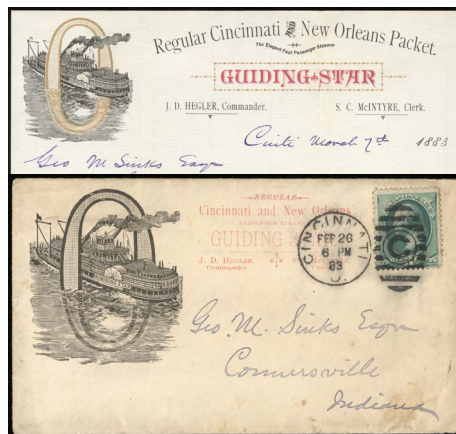 Regular Cincinnati and New Orleans Packet.
The Elegant Fast Passenger Steamer
GUIDING STAR
J. D. HEGLER, Commander.
S. C. McINTYRE, Clerk.
Cinti March 7th 1883
Geo M Sinks Esqr
REGULAR
Cincinnati and New Orleans
PASSENGER STEAMER
GUIDING S
J. D. HEGLER,
Commander.
CINCINNATI
FEB 26
6 PM
83
O.
C
Geo. M. Sinks Esqr
Connersville
Indiana